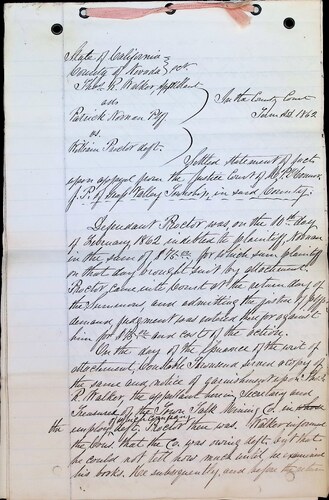 State of California
County of Nevada } Sct.
Thos. R. Walker, Appellant
ads
Patrick Noonan Plff
vs.
William Proctor deft.
In the County Court
June 1862
Settled statement of fact
upon appeal from the Justice Court of
J. P. of Grass Valley Township, in said County.
Defendant Proctor was, on the 10th day
of February 1862 indebted to plaintiff, Noonan
in the sum of for which sum plaintiff
on that day brought suit by attachment.
Proctor came into Court at the return day of
the Summons and admitting the justice of plffs
demand judgment was entered then for against
him for and costs of the action.
On the day of the issuance of the writ of
attachment, Constable Townsend served a copy of
the same and notice of garnishment upon Thos.
R. Walker, the appellant herein, Secretary and
Treasurer of the Town Talk Mining Co. in
the employ of which Company deft. Proctor then was. Walker informed
the Cons. that the Co. was owing deft. but that
he could not tell how much until he examined
his books. He subsequently, and before the return